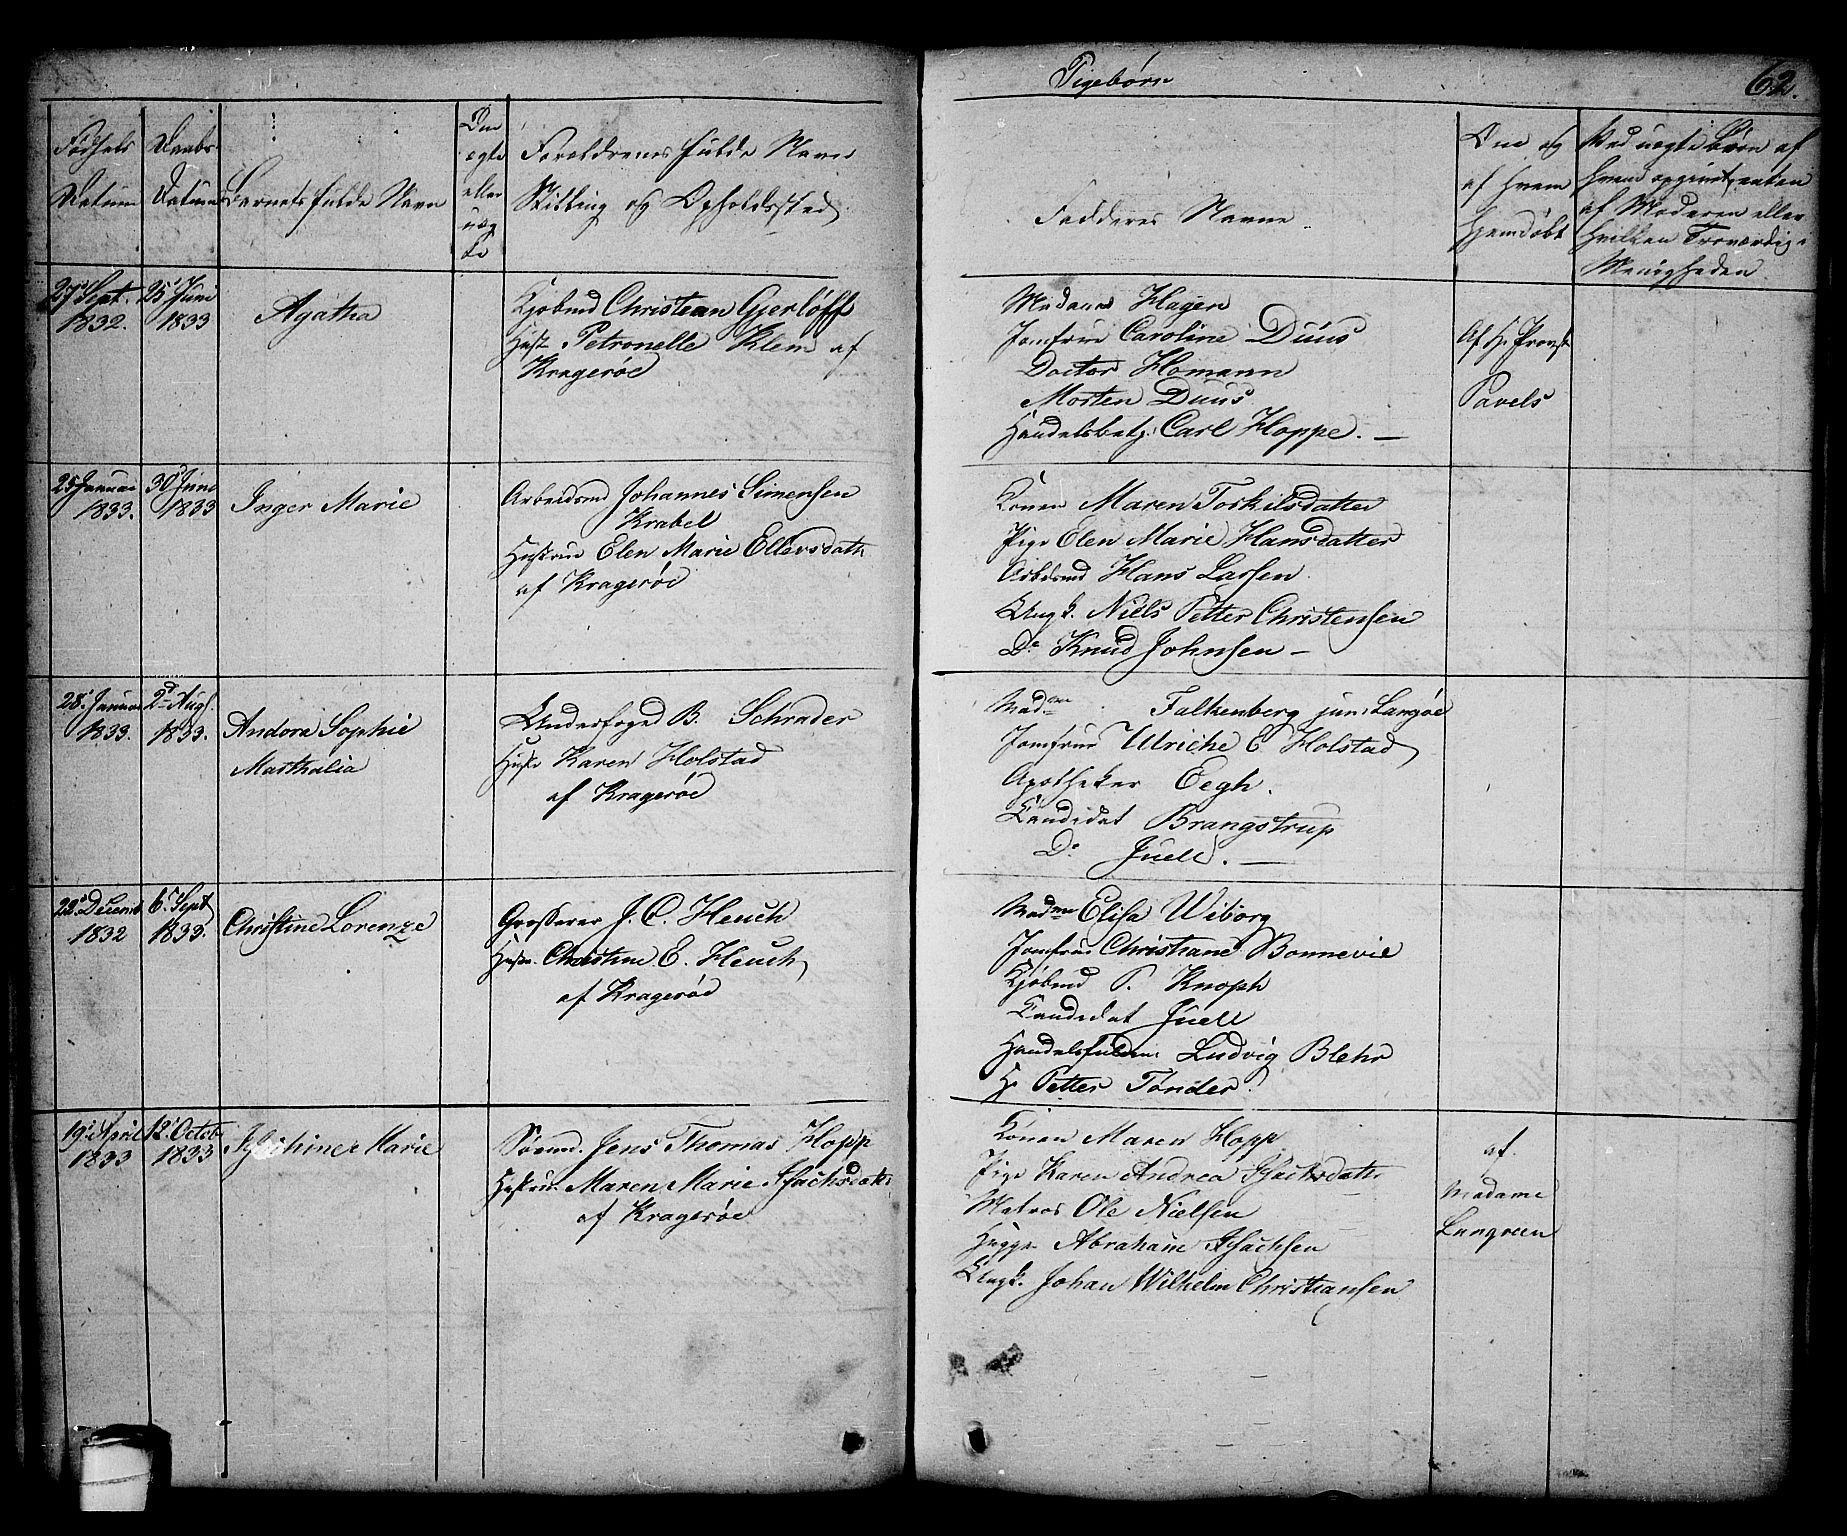 Pigebørn
62.
Fødsels Datum
Daabs Datum
Barnets fulde Navn
Om ægte eller uægte
Forældrenes fulde Navn
Stilling og Opholdssted
Faddernes Navne
Om og af hvem hjemdøbt
Ved uægte Børn af hvem opgivet, enten af Moderen eller hvilken Troværdig i Menigheden
27 Sept. 1832.
25 Juni 1833
Agatha
Kjøbmd Christian Gjerløff
Hust. Petronelle Klem af
Kragerøe
Madame Hagen
Jomfrue Caroline Duus
Doctor Homann
Morten Duus
Handelsbetj: Carl Hoppe. —
Af Hr Provst
Pavels
25 Januar 1833.
30 Juni 1833
Inger Marie
Arbeidsmd Johannes Simensen
Krabel
Hustrue Elen Marie Ellevsdatt
af Kragerøe
Konen Maren Torkilsdatter
Pige Elen Marie Hansdatter
Arbdsmd Hans Larsen
Ungk. Niels Petter Christensen
Do Knud Johnsen —
28. Januar 1833.
2d Aug. 1833.
Andora Sophie
Mathalia
Underfoged B. Schrader
Hust. Karen Holstad
af Kragerøe
Madme Falkenberg jun: Langøe
Jomfrue Ulriche E Holstad
Apotheker Eegh.
Candidat Brangstrup
Do Juell. —
22 Decemb 1832
6. Sept 1833.
Christine Lorenze
Grosserer J. C. Heuch
Hust. Christine E. Heuch
af Kragerøe
Madme Elisa Wiborg
Jomfrue Christiane Bonnevie
Kjøbmd P. Knoph
Candidat Juell
Handelsfuldm: Ludvig Blehr
Hr Petter Tønder.
19. April 1833
12. Octob 1833
Marie
Sømd. Jens Thomas Hopp
Hustru. Maren Marie Isachsdatt
af Kragerøe
Konen Maren Hopp
Pige Karen Andrea Isachsdatt
Matros Ole Nielsen
Abraham Isachsen
Ungk. Johan Wilhelm Christiansen
af.
Madame
Lungreen